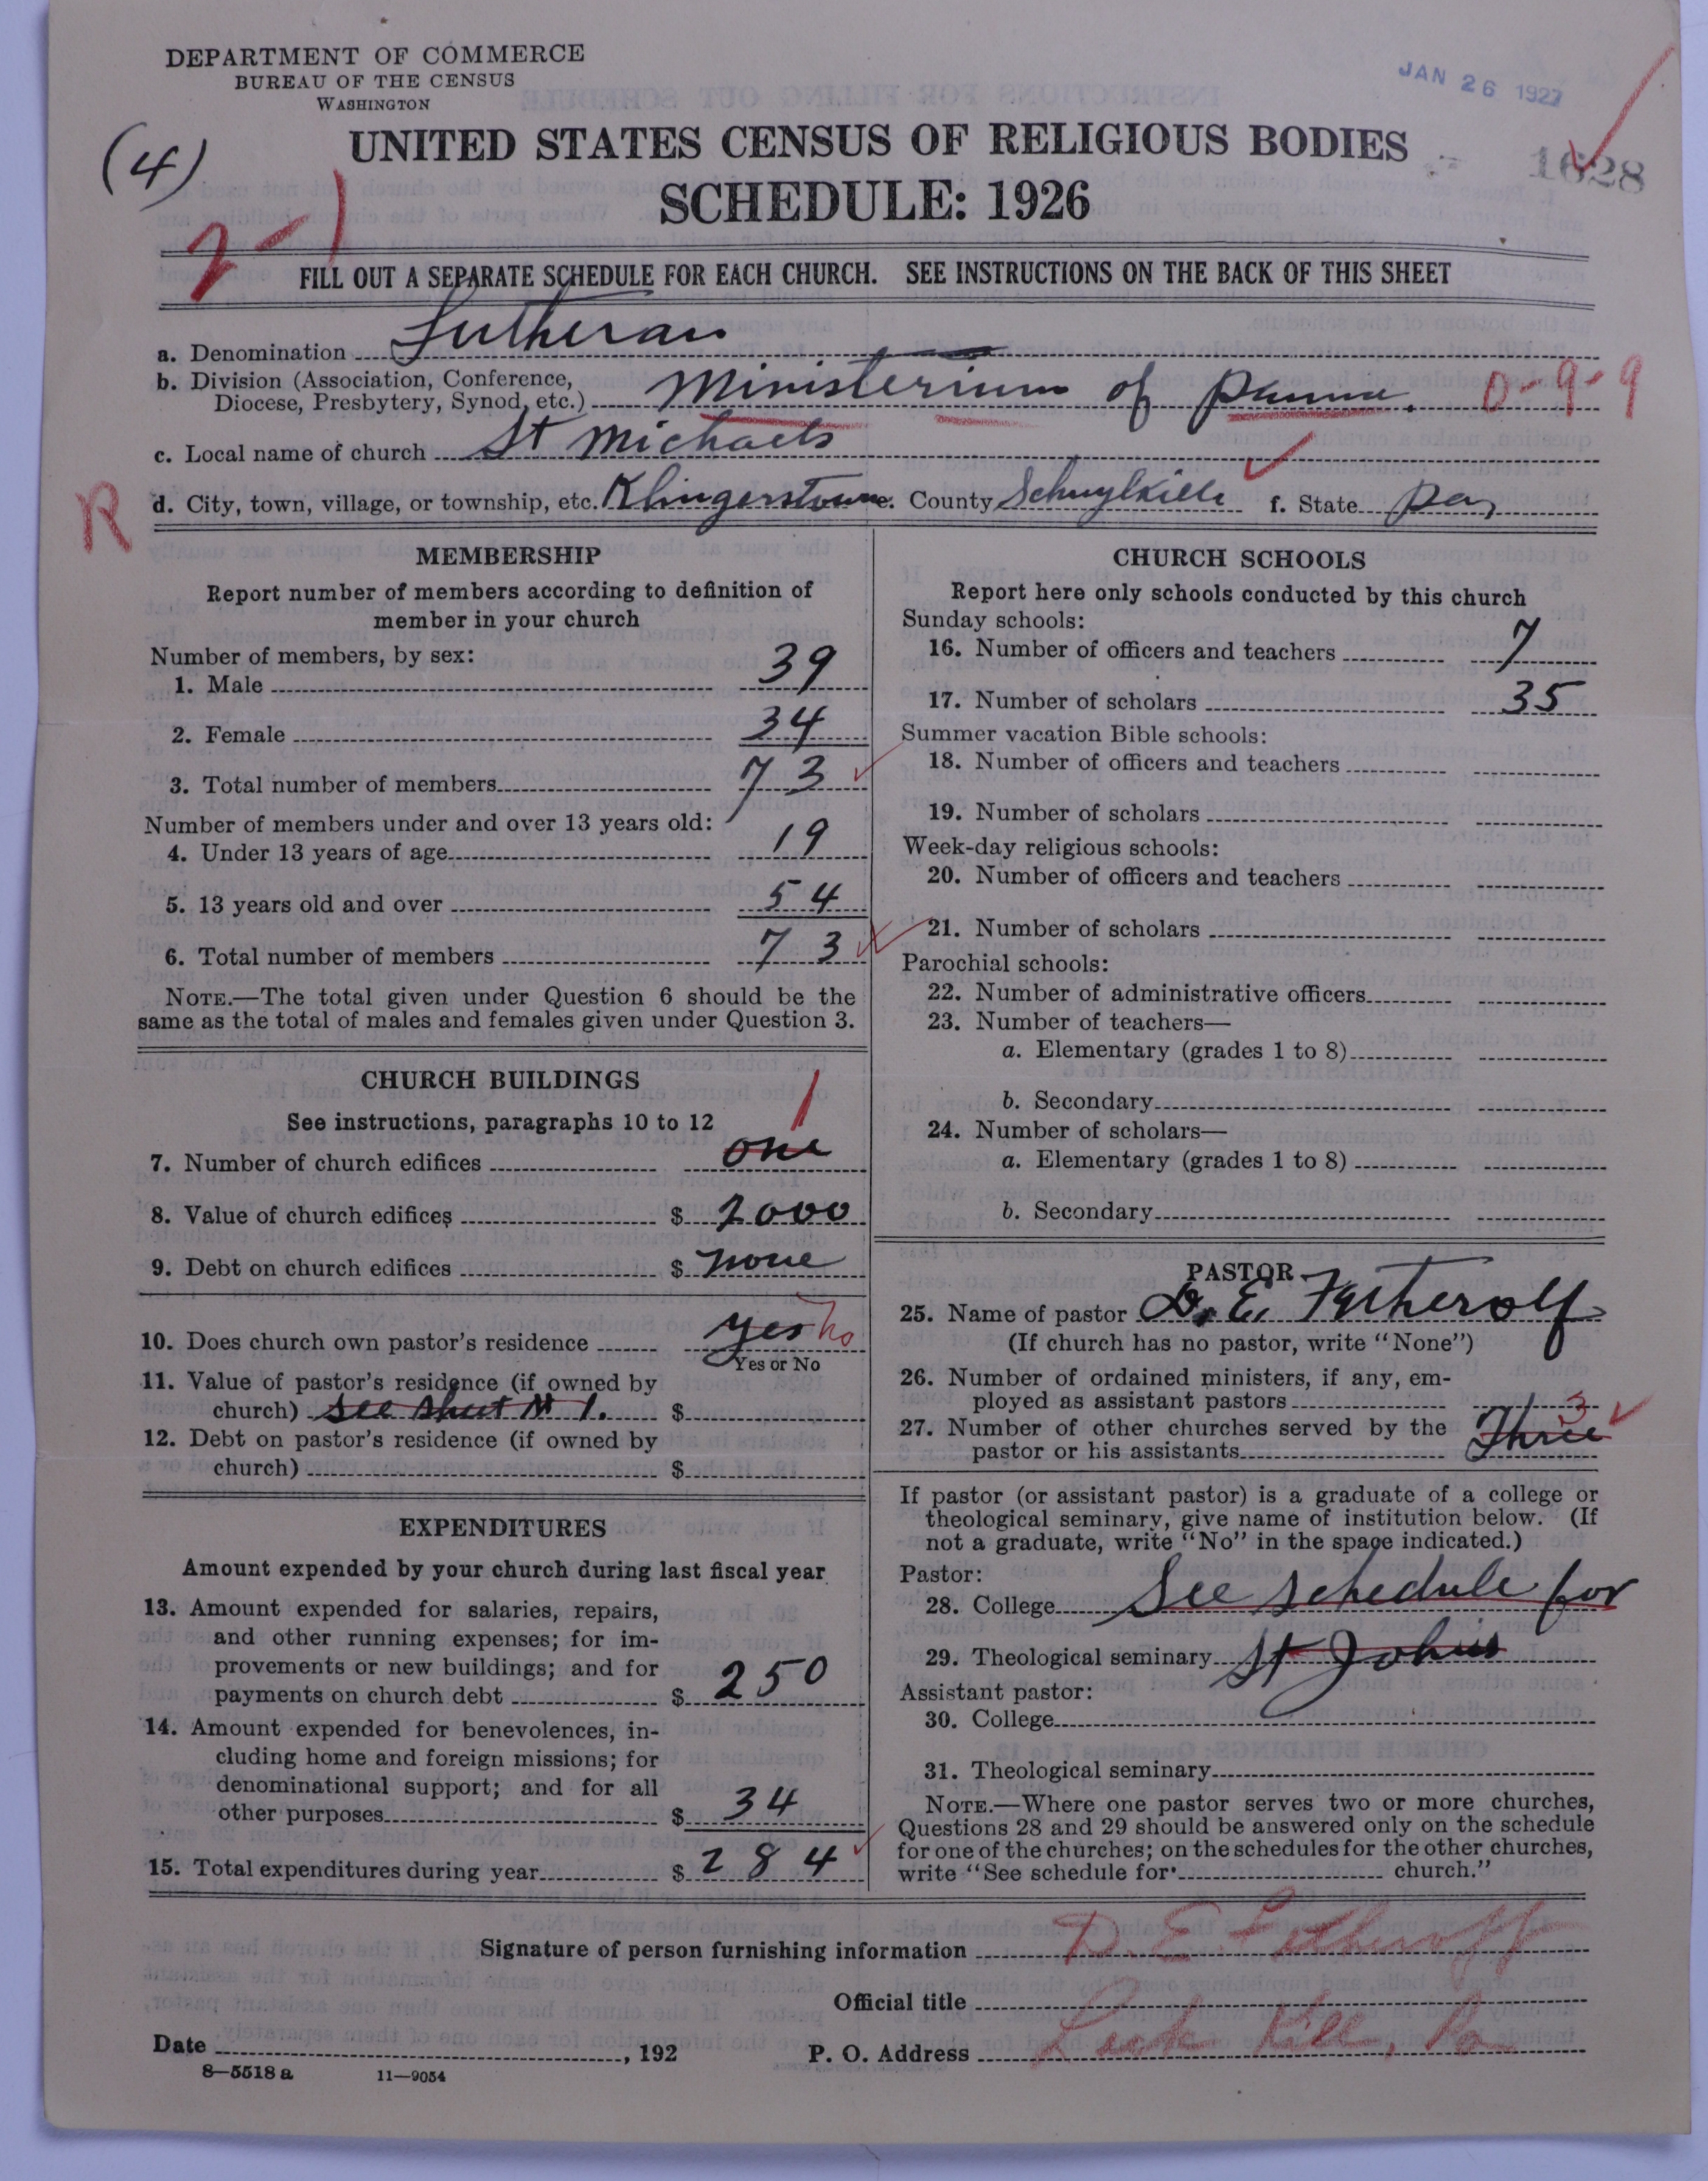 DEPARTMENT OF COMMERCE
BUREAU OF THE CENSUS
WASHINGTON
JAN 26 1927
(4)
UNITED STATES CENSUS OF RELIGIOUS BODIES
1628
SCHEDULE: 1926
2-1
FILL OUT A SEPARATE SCHEDULE FOR EACH CHURCH. SEE INSTRUCTIONS ON THE BACK OF THIS SHEET
a. Denomination Lutheran
b. Division (Association, Conference,
Diocese, Presbytery, Synod, etc.) Ministerium of Penna. 0-9-9
c. Local name of church St Michaels
R
d. City, town, village, or township, etc. Klingerstown e. County Schuylkill f. State Pa,
MEMBERSHIP
Report number of members according to definition of
member in your church
Number of members, by sex:
1. Male 39
2. Female 34
3. Total number of members 73
Number of members under and over 13 years old:
4. Under 13 years of age 19
5. 13 years old and over 54
6. Total number of members 73
NOTE.—The total given under Question 6 should be the
same as the total of males and females given under Question 3.
CHURCH BUILDINGS
See instructions, paragraphs 10 to 12 1
7. Number of church edifices one
8. Value of church edifices $ 2000
9. Debt on church edifices $ none
10. Does church own pastor's residence yes no
Yes or No
11. Value of pastor's residence (if owned by
church) see sheet № 1. $
12. Debt on pastor's residence (if owned by
church) $
EXPENDITURES
Amount expended by your church during last fiscal year
13. Amount expended for salaries, repairs,
and other running expenses; for im-
provements or new buildings; and for
payments on church debt $ 250
14. Amount expended for benevolences, in-
cluding home and foreign missions; for
denominational support; and for all
other purposes $ 34
15. Total expenditures during year $ 284
CHURCH SCHOOLS
Report here only schools conducted by this church
Sunday schools:
16. Number of officers and teachers 7
17. Number of scholars 35
Summer vacation Bible schools:
18. Number of officers and teachers
19. Number of scholars
Week-day religious schools:
20. Number of officers and teachers
21. Number of scholars
Parochial schools:
22. Number of administrative officers
23. Number of teachers—
a. Elementary (grades 1 to 8)
b. Secondary
24. Number of scholars—
a. Elementary (grades 1 to 8)
b. Secondary
PASTOR
25. Name of pastor D. E. Fetherolf
(If church has no pastor, write "None")
26. Number of ordained ministers, if any, em-
ployed as assistant pastors
27. Number of other churches served by the 3
pastor or his assistants Three
If pastor (or assistant pastor) is a graduate of a college or
theological seminary, give name of institution below. (If
not a graduate, write "No" in the space indicated.)
Pastor:
28. College See schedule for
29. Theological seminary St Johns
Assistant pastor:
30. College
31. Theological seminary
NOTE.—Where one pastor serves two or more churches,
Questions 28 and 29 should be answered only on the schedule
for one of the churches; on the schedules for the other churches,
write "See schedule for church."
Signature of person furnishing information D. E. Fetherolf
Official title
Date , 192 P. O. Address Leck Kill, Pa
8—5518 a 11—9054